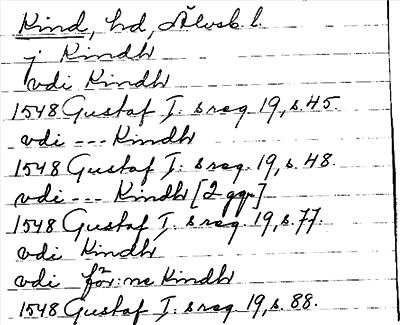 Kind, hd, Älvsb. l.
j Kindh
vdi Kindh
1548 Gustaf I:s reg 19, s. 45.
vdi --- Kindh
1548 Gustaf I:s reg. 19, s. 48.
vdi --- Kindh [2 ggr]
1548 Gustaf I:s reg. 19, s. 77.
vdi Kindh
vdi för:ne Kindh
1548 Gustaf I:s reg 19, s. 88.